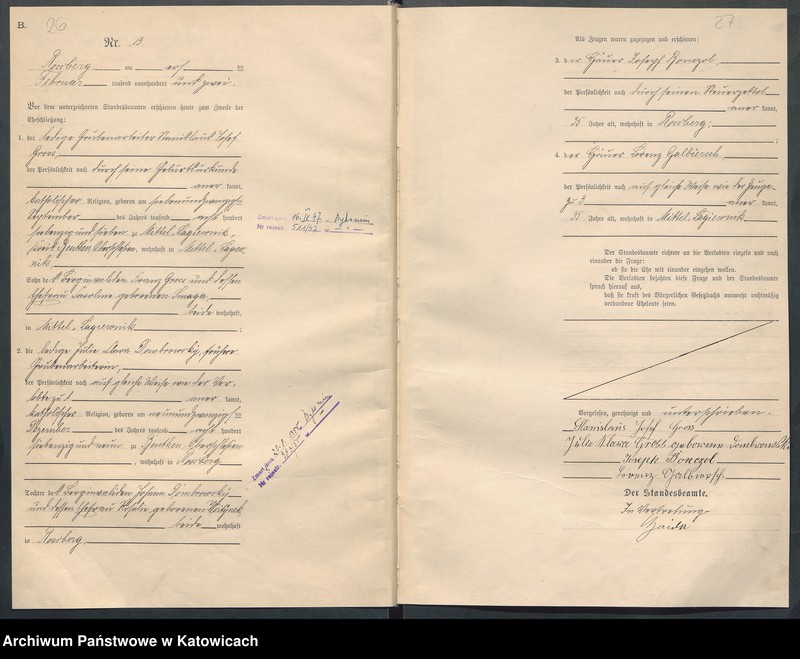 B.
26
Nr. 13.
Rossberg, am erst ten
Februar tausend neunhundert und zwei.
Vor dem unterzeichneten Standesbeamten erschienen heute zum Zwecke der
Eheschließung:
1. der ledige Grubenarbeiter Stanislaus Josef
Gross,
der Persönlichkeit nach durch seine Geburtsurkunde
aner kannt,
katholischer Religion, geboren am siebenundzwanzigsten
September des Jahres tausend acht hundert
siebenzig und sieben zu Mittel-Lagiewnik,
Kreis Beuthen Oberschlesien, wohnhaft in Mittel-Lagiew-
nik
Sohn des Berginvaliden Franz Gross und dessen
Ehefrau Karoline geborenen Smaga,
beide wohnhaft
in Mittel-Lagiewnik;
2. die ledige Julie Clara Dombrowsky, frühere
Grubenarbeiterin,
der Persönlichkeit nach auf gleiche Weise wie der Ver-
lobte zu 1 aner kannt,
katholischer Religion, geboren am neunundzwanzigsten
Dezember des Jahres tausend acht hundert
siebenzig und neun zu Beuthen Oberschlesien
, wohnhaft in Rossberg
Tochter des Berginvaliden Johann Dombrowsky
und dessen Ehefrau Rosalie geborenen
beide wohnhaft
in Rossberg,
Zmarł dnia
Nr rejestr. 511/47
Zmarł dnia
Nr rejestr.
27
Als Zeugen waren zugezogen und erschienen:
3. der Häuer Joseph Bonczol,
der Persönlichkeit nach durch seinen Steuerzettel
aner kannt,
35 Jahre alt, wohnhaft in Rossberg;
4. der Häuer Lorenz Galbiersch,
der Persönlichkeit nach auf gleiche Weise wie der Zeuge
zu 3 aner kannt,
35 Jahre alt, wohnhaft in Mittel-Lagiewnik
Der Standesbeamte richtete an die Verlobten einzeln und nach
einander die Frage:
ob sie die Ehe mit einander eingehen wollen.
Die Verlobten bejahten diese Frage und der Standesbeamte
sprach hierauf aus,
daß sie kraft des Bürgerlichen Gesetzbuchs nunmehr rechtmäßig
verbundene Eheleute seien.
Vorgelesen, genehmigt und unterschrieben.
Stanislaus Josef Gross
Julie Clara Gross geborene Dombrowski
Joseph Bonczol
Lorenz Galbiersch.
Der Standesbeamte.
In Vertretung
Gaida
Archiwum Państwowe w Katowicach